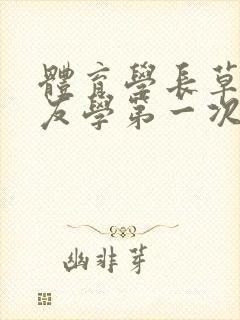 體育學長草
友學第一次
幽非芽